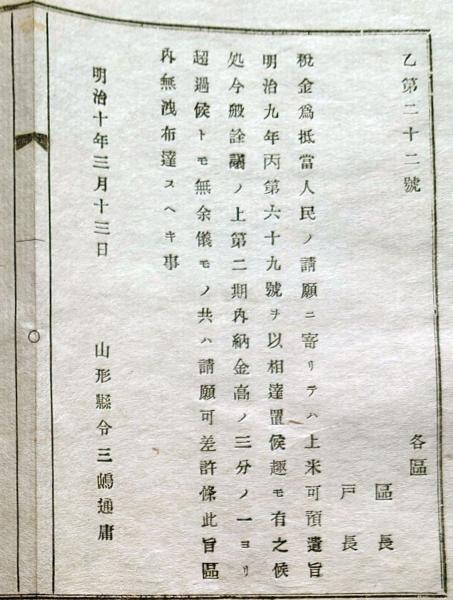 乙第二十二號
各區
區長
戸長
税金爲抵當人民ノ請願ニ寄リテハ上米可預遣旨
明治九年丙第六十九號ヲ以相達置候趣モ有之候
処今般詮議ノ上第二期内納金高ノ三分ノ一ヨリ
超過候トモ無余儀モノ共ハ請願可差許條此旨區
内無洩布達スヘキ事
明治十年三月十三日
山形縣令三嶋通庸